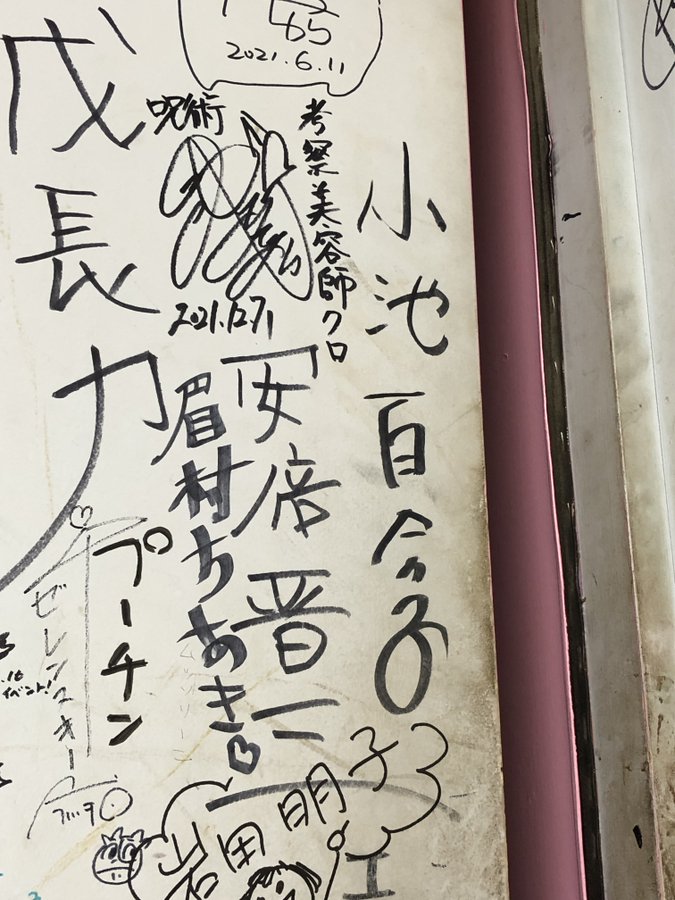 2021.6.11
小池百合子
考察美容師クロ
呪術
安倍晋三
眉村ちあき♡
プーチン
ゼレンスキー
長力
イベント!
岩田明子